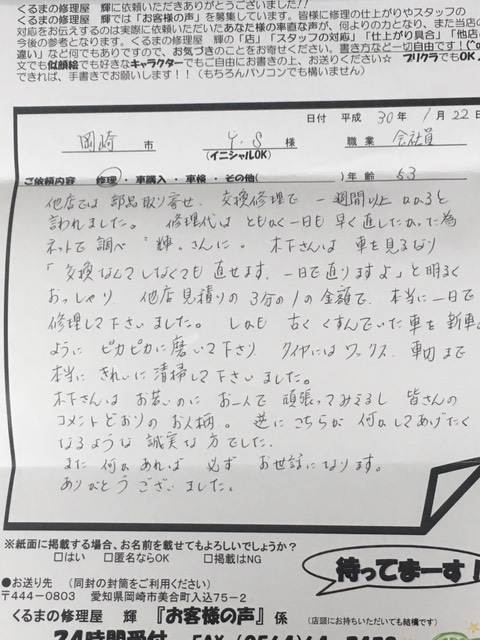 くるまの修理屋 輝に依頼いただきありがとうございました!!
くるまの修理屋 輝では「お客様の声」を募集しています。皆様に修理の仕上がりやスタッフの
対応をお伝えするのは実際に依頼いただいたあなた様の率直な声が、何よりの力となり、また当店の
今後の参考となります。くるまの修理屋 輝の「店」「スタッフの対応」「仕上がり具合」「他店
違い」など何でもありですので、お気づきのことをお寄せください。書き方など一切自由です!
文でも似顔絵でも好きなキャラクターでもご自由にお書きの上、お送りください☆ プリクラでもOK
できれば、手書きでお願いします!!(もちろんパソコンでも構いません)
日付 平成 30年 1月 22日
岡崎 市 Y.S 様 職業 会社員
(イニシャルOK)
ご依頼内容 修理・車購入・車検・その他( )年齢 53
他店では 部品取り寄せ、交換修理で 一週間以上 かかると
言われました。 修理代は ともかく一日も 早く直したかった為
ネットで調べ "輝"さんに。 木下さんは 車を見るなり
「交換なんてしなくても 直せます。一日で直りますよ」と明るく
おっしゃり 他店見積りの 3分の1の金額で、本当に一日で
修理して下さいました。 しかも 古く くすんでいた車を 新車の
ように ピカピカに磨いて下さり タイヤにはワックス、車内まで
本当に きれいに清掃して下さいました。
木下さんは お若いのに お一人で 頑張ってみえるし 皆さんの
コメントどおりの お人柄。 逆に こちらが 何かしてあげたく
なるような 誠実な方でした。
また 何かあれば 必ず お世話になります。
ありがとうございました。
※紙面に掲載する場合、お名前を載せてもよろしいでしょうか?
□はい □匿名ならOK □掲載はNG
待ってまーす!
●お送り先 (同封の封筒をご利用ください)
〒444-0803 愛知県岡崎市美合町入込75-2
くるまの修理屋 輝 『お客様の声』係 (店頭にお持ちいただいても結構です)
24時間受付 FAX (0564)